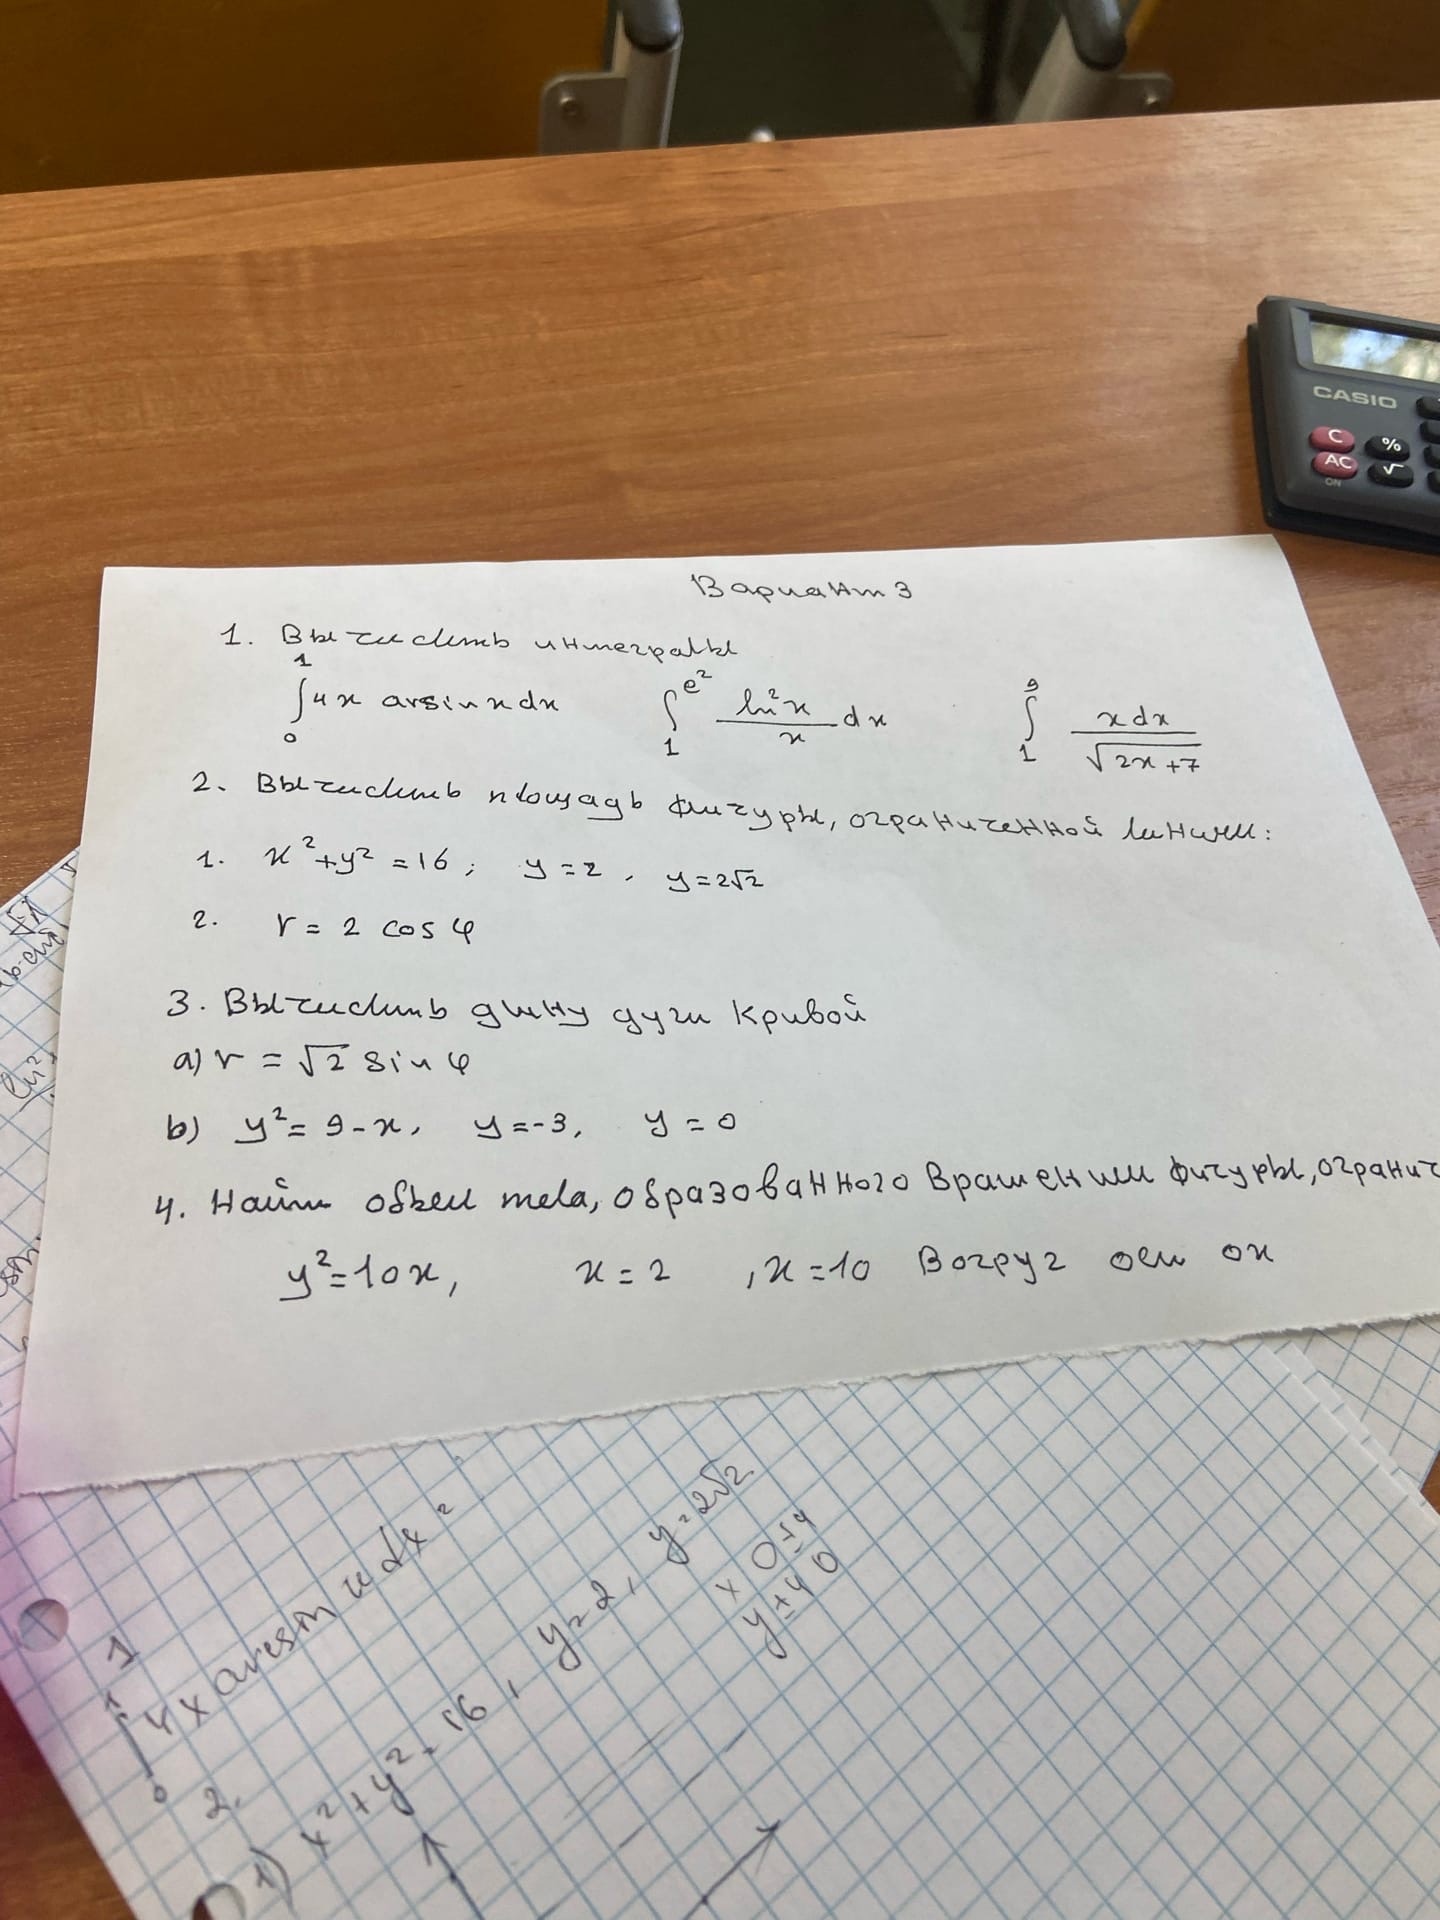 CASIO
C
%
AC
√
ON
Вариант 3
1. Вычислить интегралы
∫₀¹ 4x arsin x dx   ∫₁^(e²) ln²x/x dx   ∫₁⁹ xdx/√(2x+7)
2. Вычислить площадь фигуры, ограниченной линиями:
1. x²+y²=16; y=2, y=2√2
2. r = 2 cos φ
3. Вычислить длину дуги кривой
a) r = √2 sin φ
b) y²= 9-x, y=-3, y=0
4. Найти объем тела, образованного вращением фигуры, огранич
y²=10x, x=2, x=10 Вогруг оси ox
∫₀¹ 4x arcsin x dx =
2.
1) x²+y²=16, y=2, y=2√2
x 0 ±4
y ±4 0